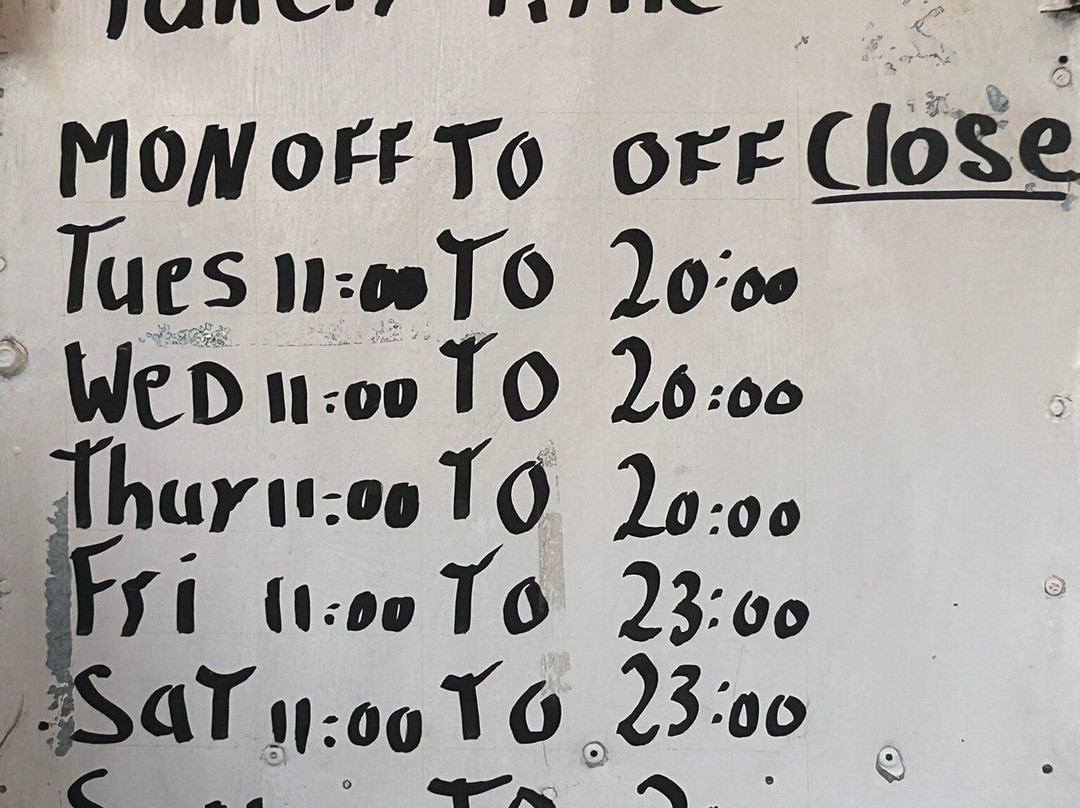 MON OFF TO OFF Close
Tues 11:00 TO 20:00
WeD 11:00 TO 20:00
Thur 11:00 TO 20:00
Fri 11:00 TO 23:00
SaT 11:00 TO 23:00
TO